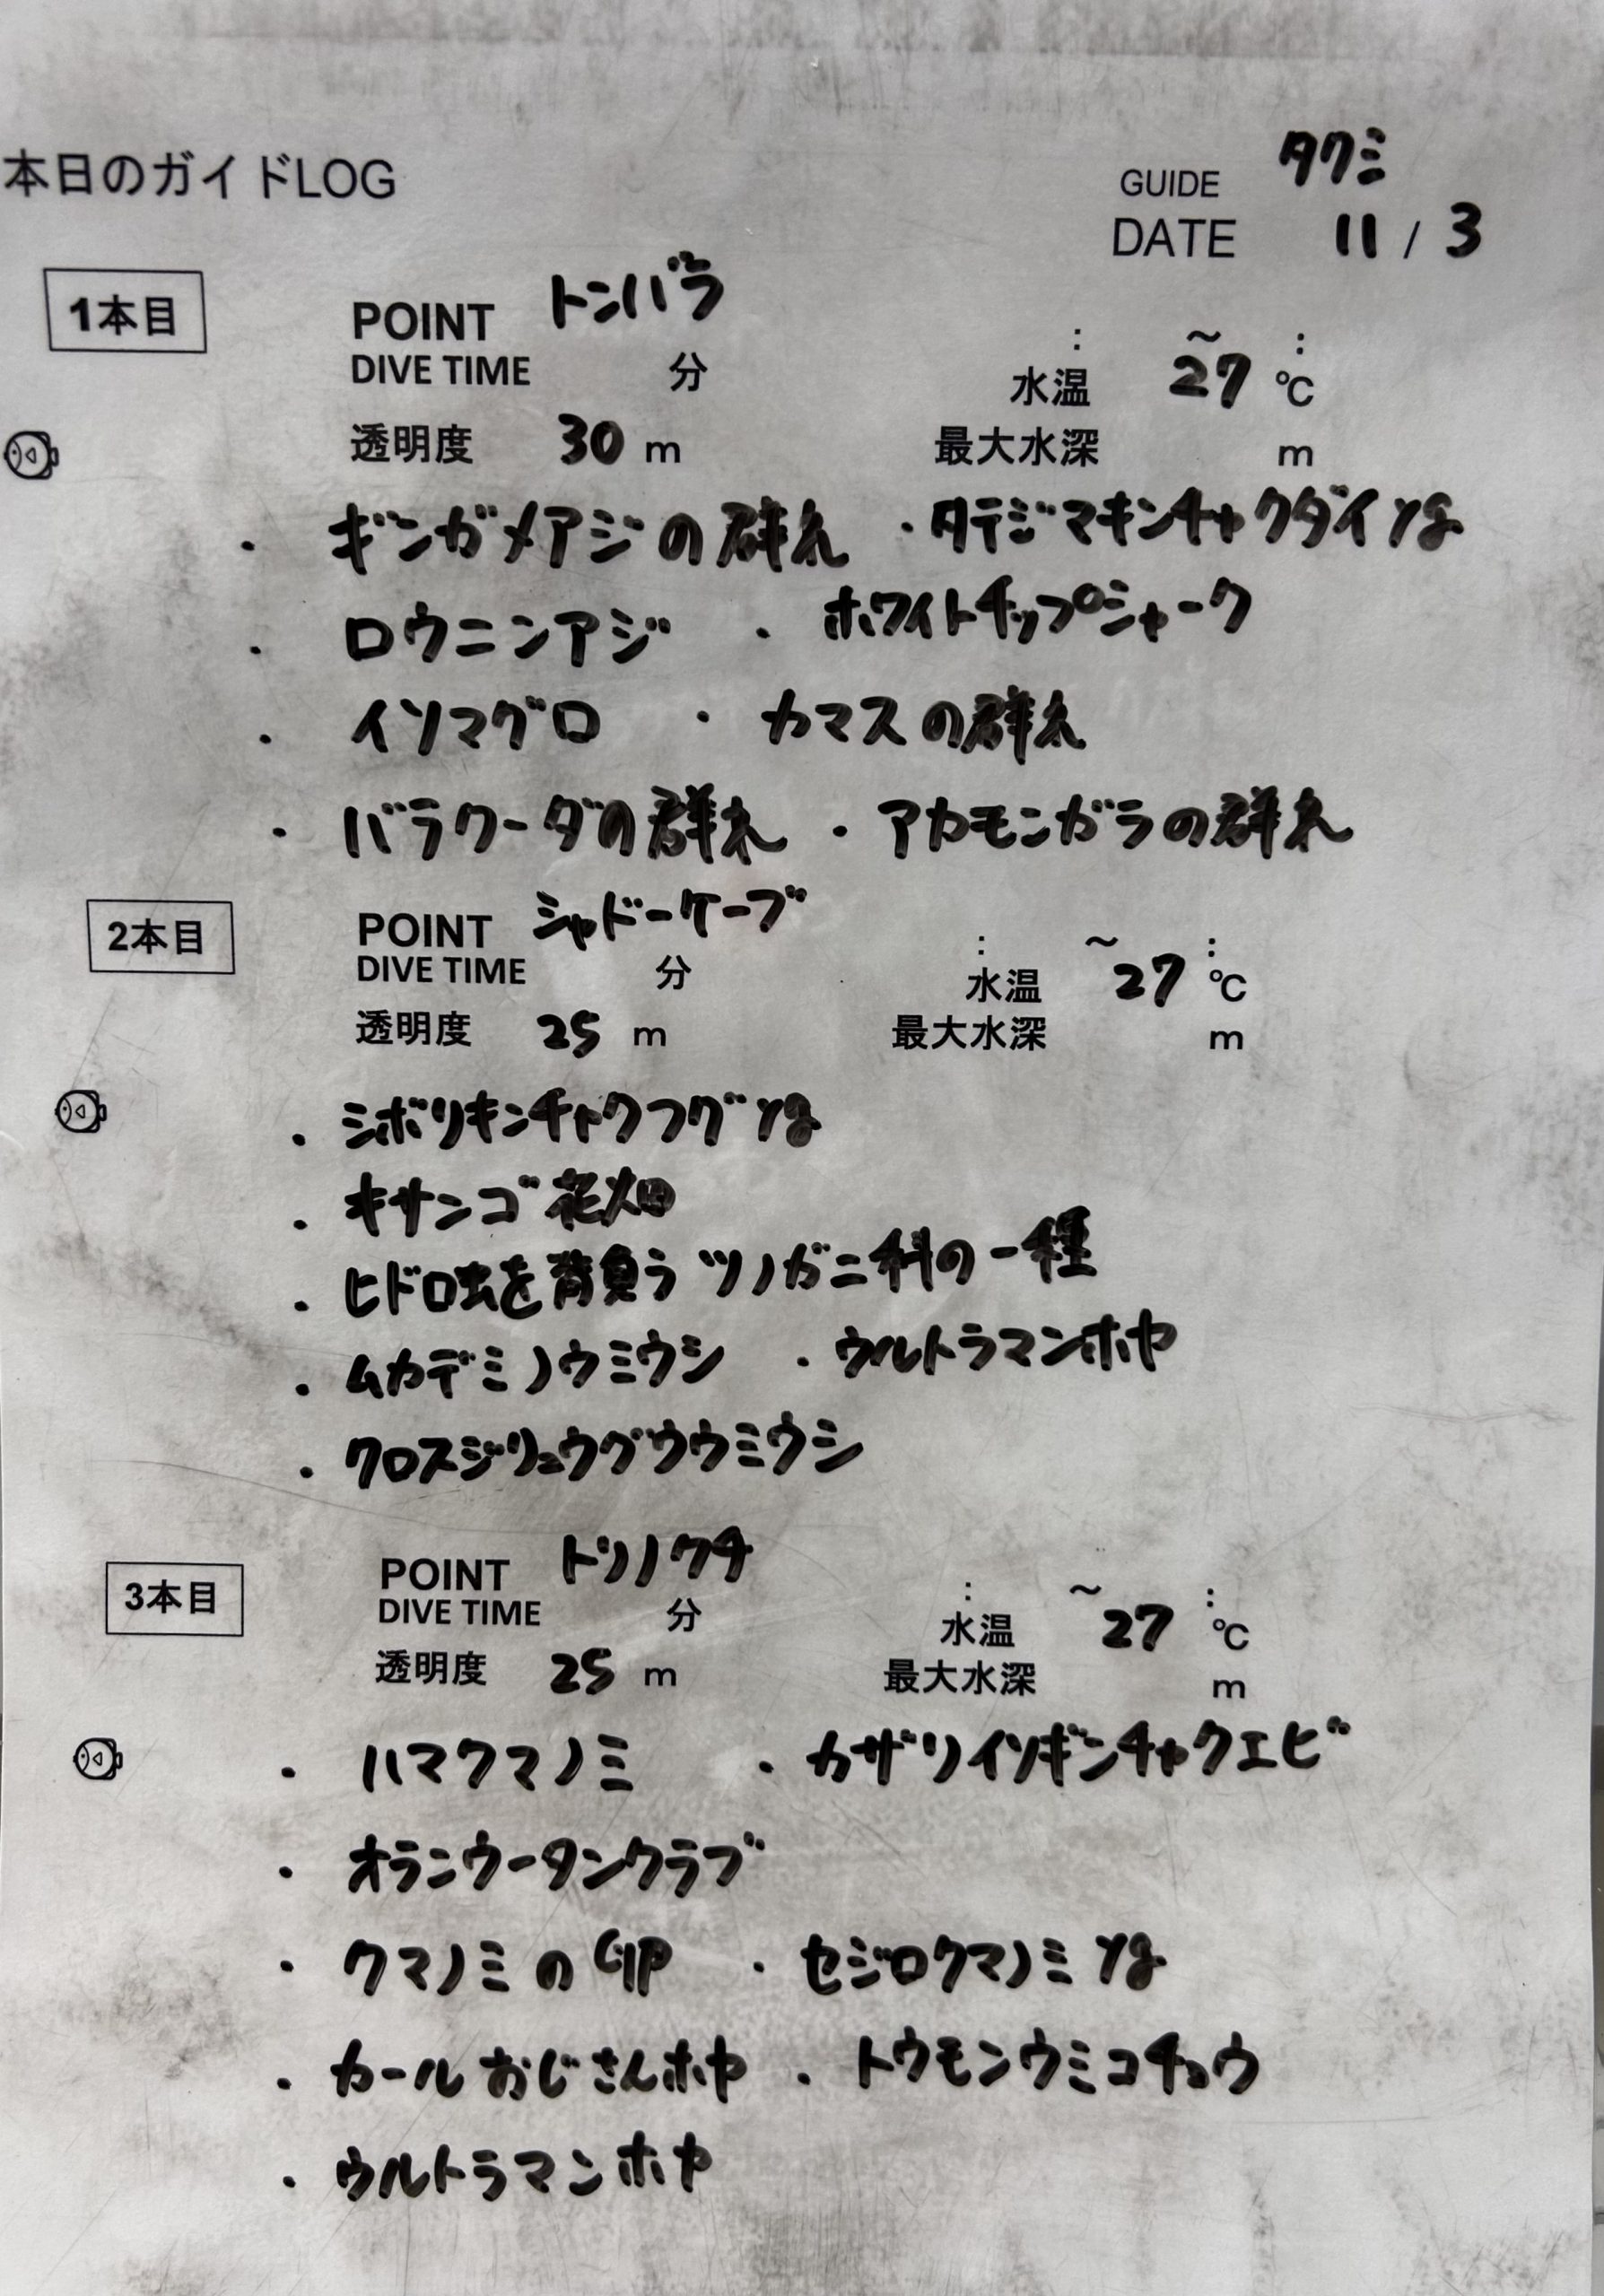 本日のガイドLOG
GUIDE タクミ
DATE 11 / 3
1本目
POINT トンバラ : ~ :
DIVE TIME 分 水温 27 ℃
透明度 30 m 最大水深 m
・ギンガメアジの群れ ・タテジマキンチャクダイ yg
・ロウニンアジ ・ホワイトチップシャーク
・イソマグロ ・カマスの群れ
・バラクーダの群れ ・アカモンガラの群れ
2本目
POINT シャドーケーブ : ~ :
DIVE TIME 分 水温 27 ℃
透明度 25 m 最大水深 m
・シボリキンチャクフグ yg
・キサンゴ花畑
・ヒドロ虫を背負うツノガニ科の一種
・ムカデミノウミウシ ・ウルトラマンホヤ
・クロスジリュウグウウミウシ
3本目
POINT トリノクチ : ~ :
DIVE TIME 分 水温 27 ℃
透明度 25 m 最大水深 m
・ハマクマノミ ・カザリイソギンチャクエビ
・オランウータンクラブ
・クマノミの卵 ・セジロクマノミ yg
・カールおじさんホヤ ・トウモンウミコチョウ
・ウルトラマンホヤ